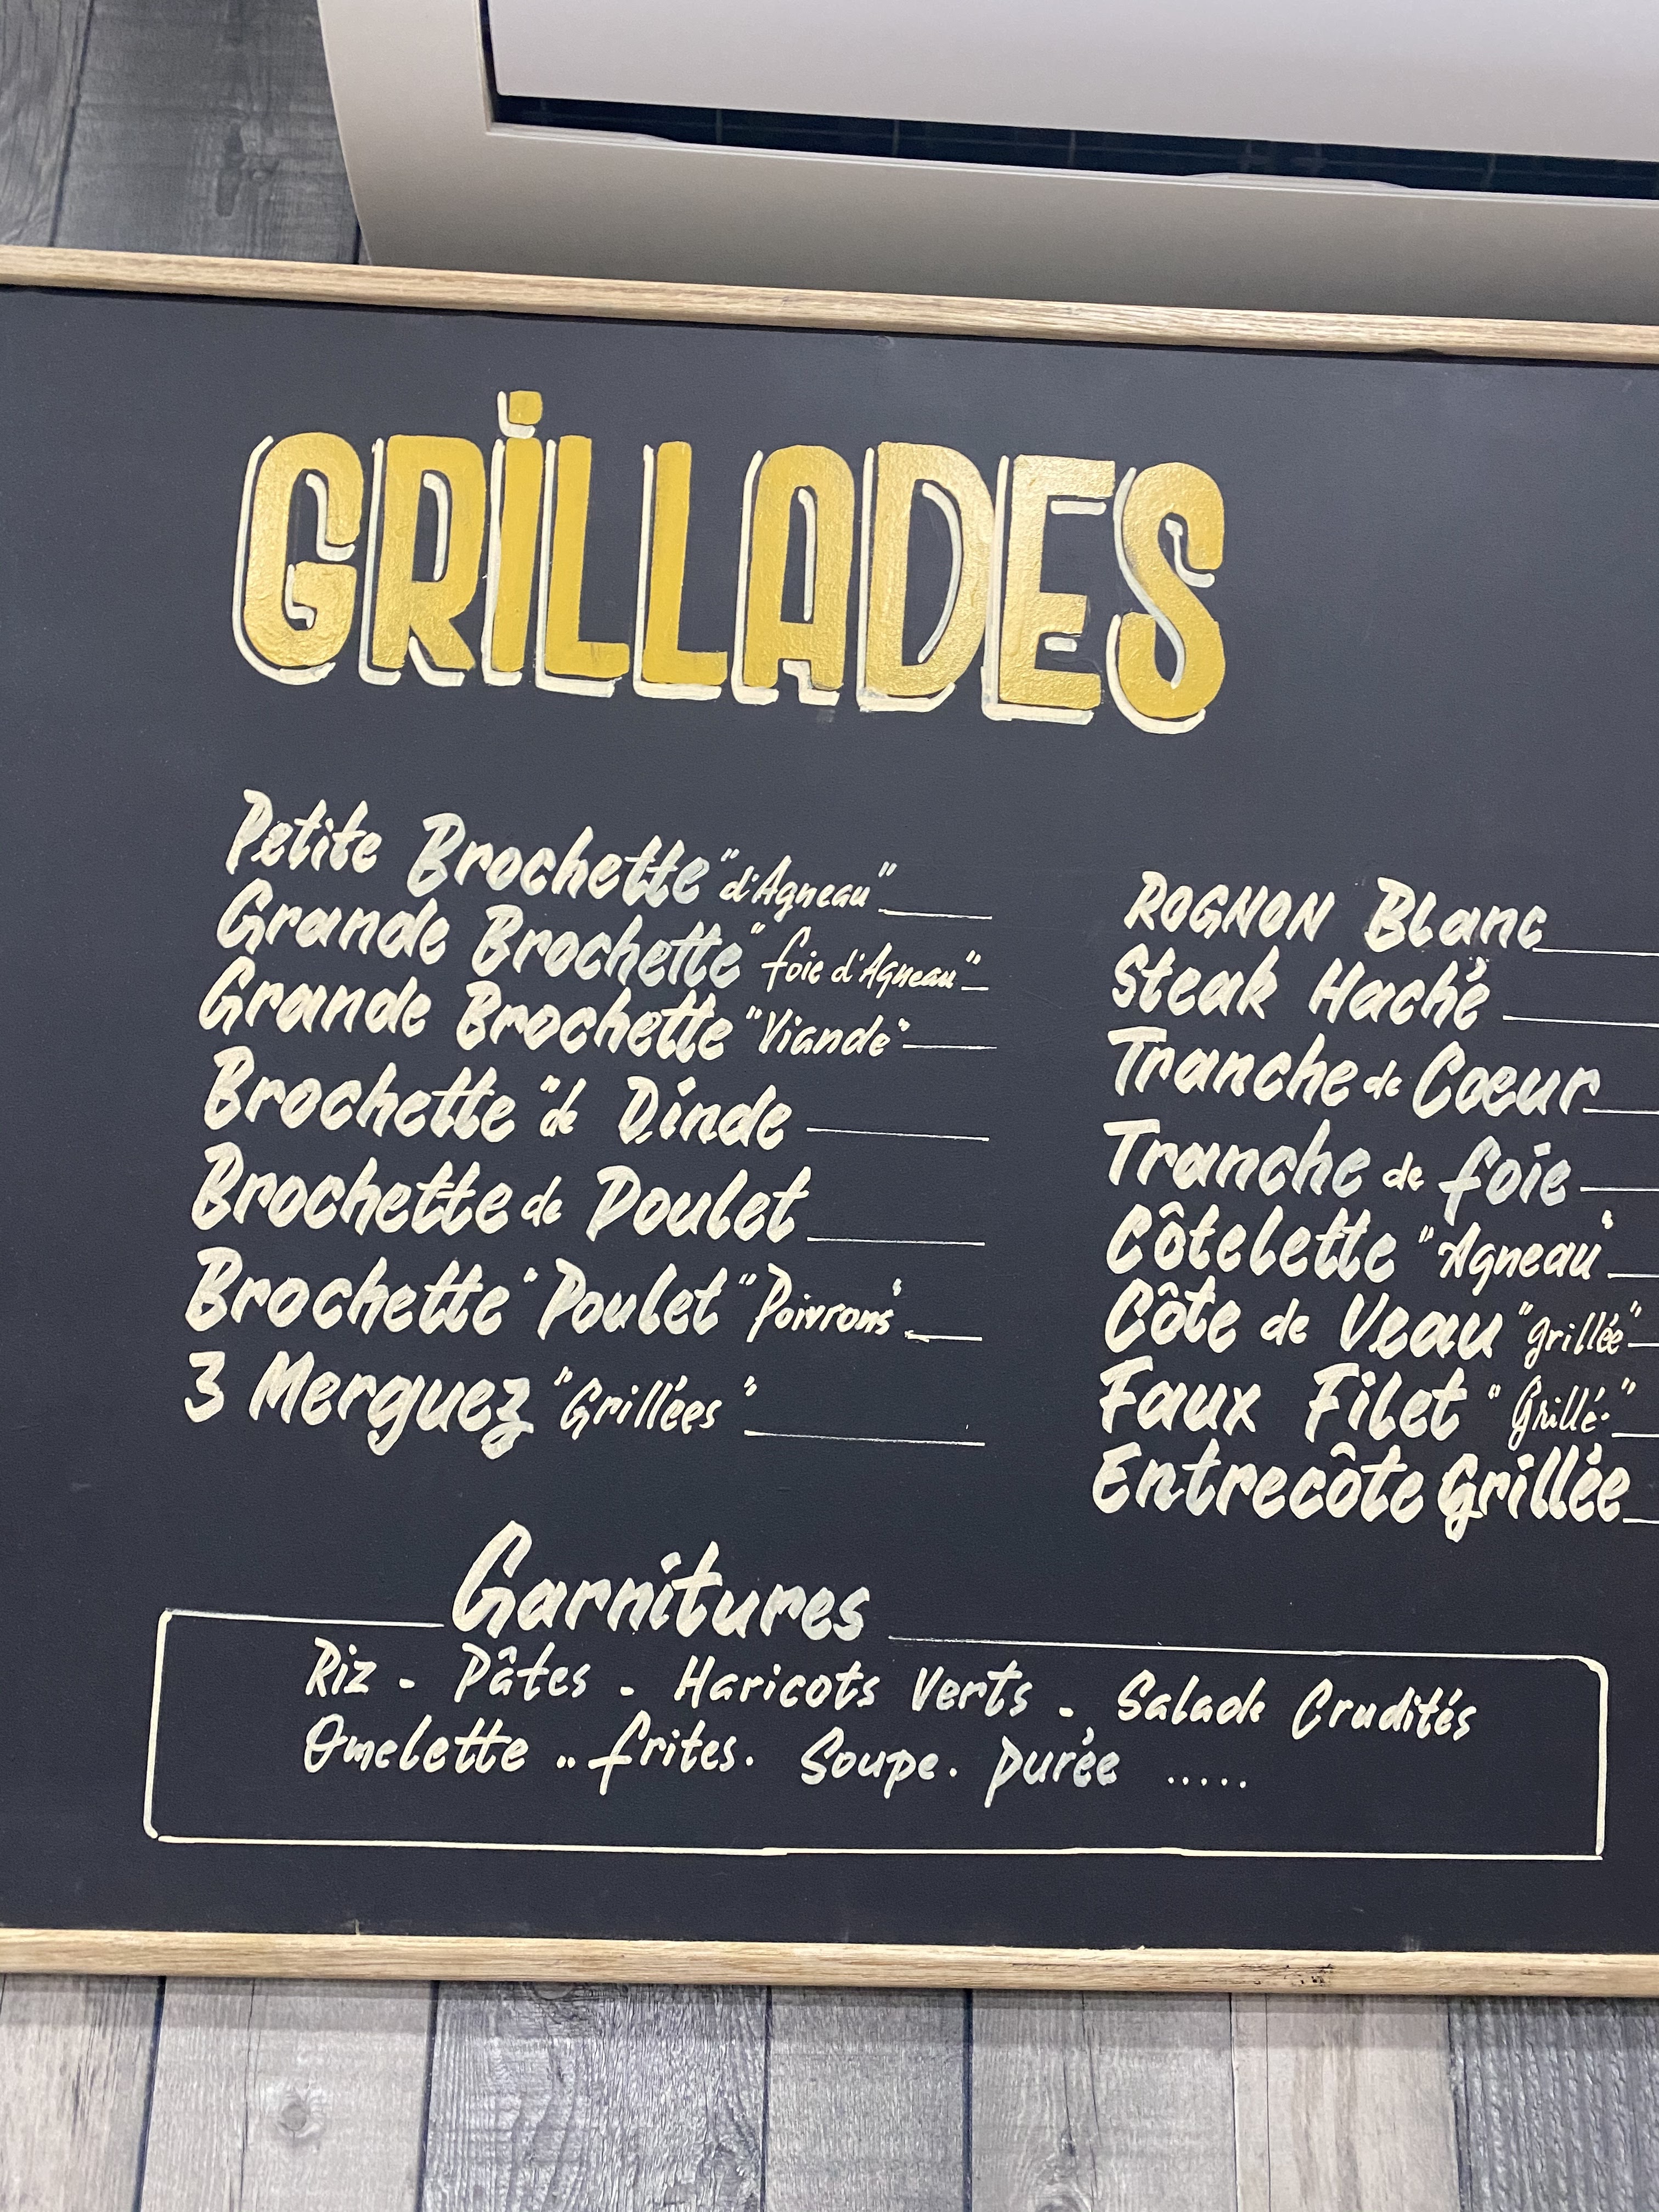 GRiLLADES
Petite Brochette "d'Agneau"
Grande Brochette "foie d'Agneau"
Grande Brochette "Viande"
Brochette "de Dinde
Brochette de Poulet
Brochette "Poulet" Poivrons"
3 Merguez "Grillées"
ROGNON Blanc
Steak Haché
Tranche de Cœur
Tranche de foie
Côtelette "Agneau"
Côte de Veau "grillée"
Faux Filet "Grillé"
Entrecôte Grillée
Garnitures
Riz - Pâtes - Haricots Verts - Salade Crudités
Omelette .. frites. Soupe. purée .....